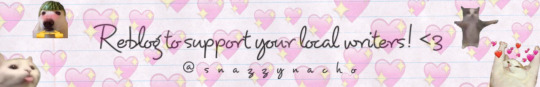 Reblog to support your local writers! <3
@snazzynacho